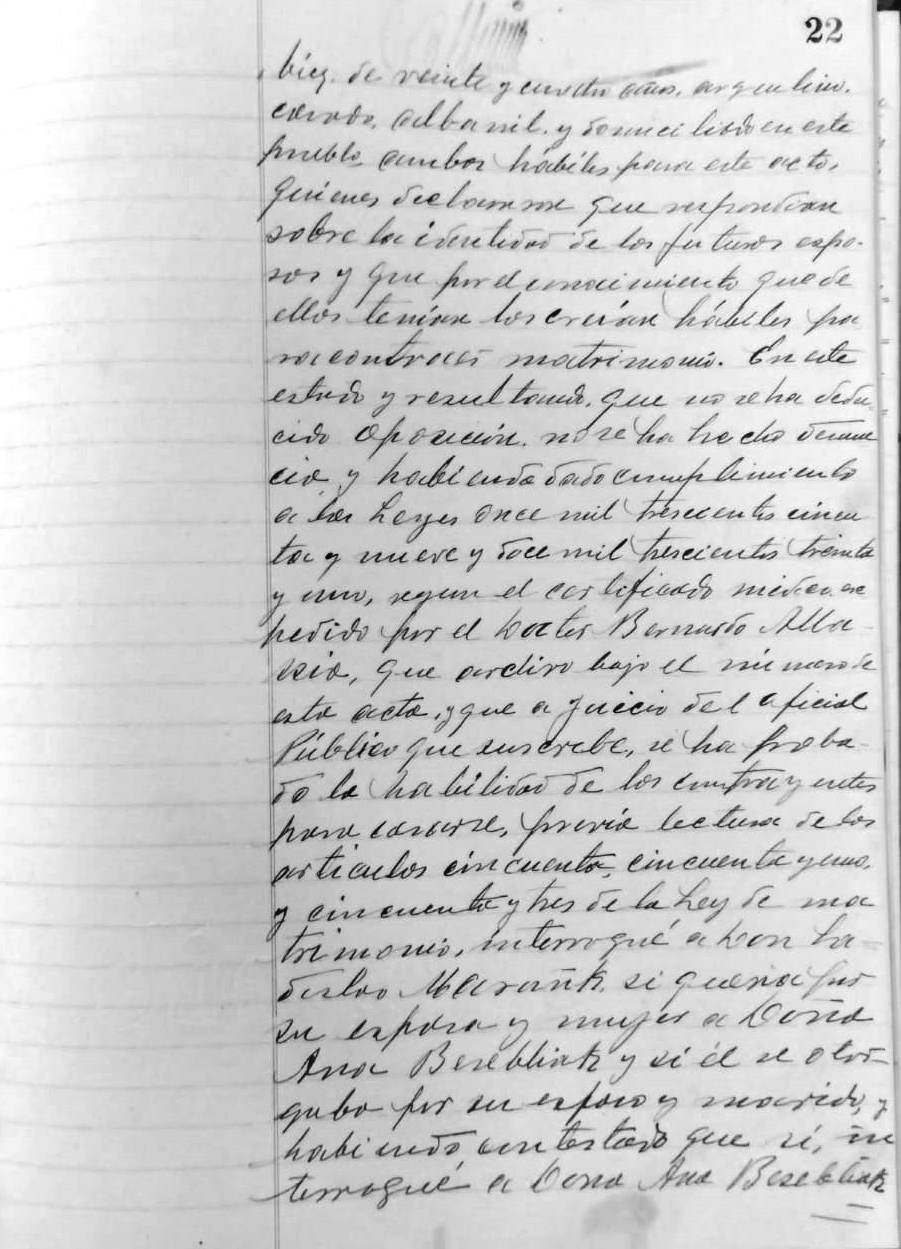 22
biez. de veinte y cuatro años, argentino.
casado, albanil. y domiciliado en este
pueblo, ambos hábiles para este acto,
quienes declararon que respondían
sobre la identidad de los futuros espo-
sos y que por el conocimiento que de
ellos tenían los creían hábiles pa
ra contraer matrimonio. En este
estado y resultando, que no se ha dedu-
cido oposición, no se ha hecho denun
cia y habiendo dado cumplimiento
a las Leyes once mil trescientos cincu
ta y nueve y doce mil trescientos treinta
y uno, segun el certificado médico ex
pedido por el Doctor Bernardo
que archivo bajo el número de
esta acta, y que a juicio del oficial
Público que suscribe, se ha proba-
do la habilidad de los contrayentes
para casarse, previa lectura de los
artículos cincuenta, cincuenta y uno,
y cincuenta y tres de la Ley de ma
trimonio, interrogué a Don La-
dislao si quería por
su esposa y mujer a Doña
Ana y si él se otor-
gaba por su esposo y marido, y
habiendo contestado que sí, in
terrogué a Doña Ana